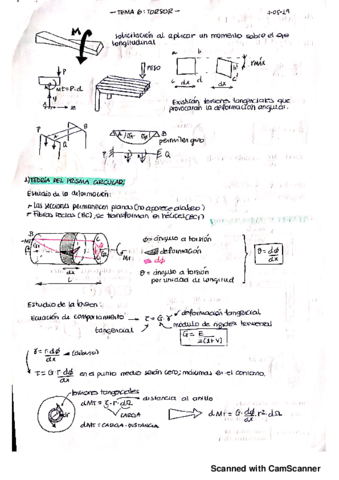 - TEMA 6: TORSOR -
solicitación al aplicar un momento sobre el eje
longitudinal
M
P
PESO
a
b
c
d
dx
dx
Mt = P.d
Existirán tensiones tangenciales que
provocarán la deformación angular.
P
Q
1) TEORÍA DEL PRISMA CIRCULAR
Estudio de la deformación:
las secciones permanecen planas (no aparece alabeo)
Fibras rectas (BC), se transforman en hélices (BC')
dx
L
φ = ángulo a torsión
deformación
dφ
θ = dφ/dx
θ = ángulo a torsión
por unidad de longitud
Estudio de la tensión:
Ecuación de comportamiento → τ = G·γ → deformación tangencial
tangencial
módulo de rigidez transversal
G = E/2(1+ν)
γ = r dφ/dx (dibujo)
τ = G·r dφ/dx en el punto medio serán cero; máximas en el contorno.
tensiones tangenciales
distancia al anillo
dMt = τ·r·dΩ
CARGA
dMt = CARGA·DISTANCIA
dMt = G·dφ/dx·r²·dΩ
Scanned with CamScanner